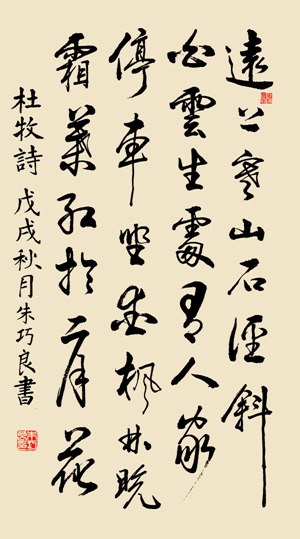 遠上寒山石徑斜
白雲生處有人家
停車坐愛楓林晚
霜葉紅於二月花
杜牧詩 戊戌秋月朱巧良書